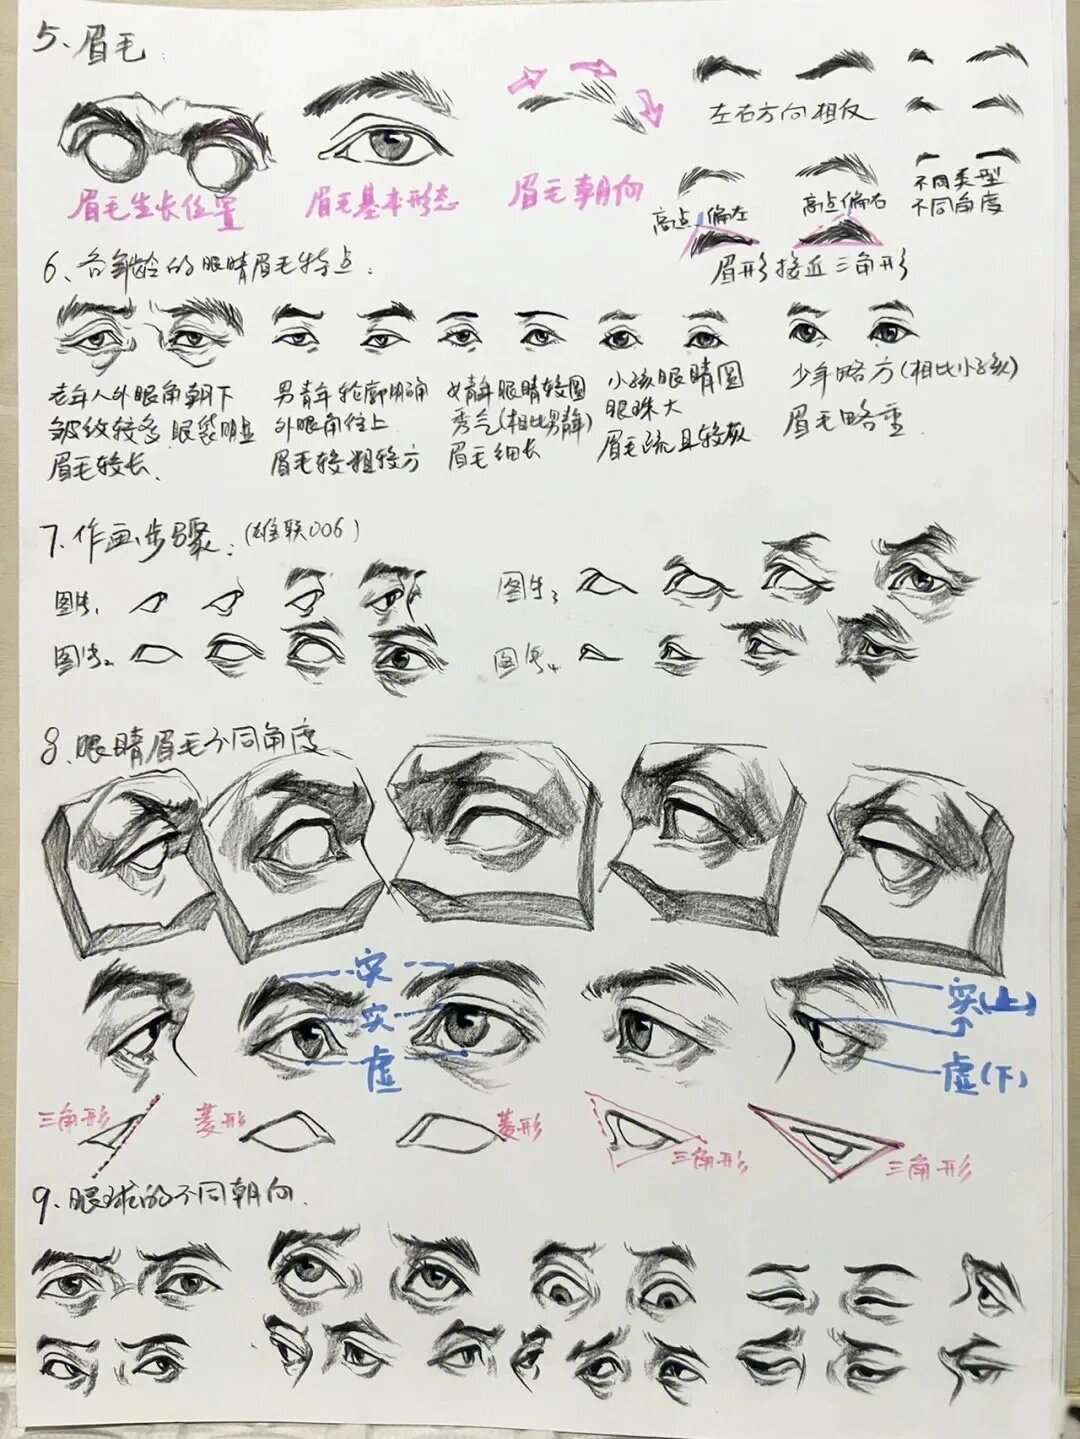 5、眉毛:
眉毛生长位置
眉毛基本形态
眉毛朝向
左右方向相反
高点偏左
高点偏右
不同类型
不同角度
眉形接近三角形
6、各年龄的眼睛眉毛特点:
老年人外眼角朝下
皱纹较多 眼袋明显
眉毛较长、
男青年轮廓明确
外眼角往上
眉毛较粗较方
女青年眼睛较圆
秀气(相比男青年)
眉毛细长
小孩眼睛圆
眼珠大
眉毛疏且较灰
少年略方(相比小孩)
眉毛略重
7、作画步骤:
图例1
图例2
图例3
图例4
8、眼睛眉毛不同角度
实
实
虚
实(上)
虚(下)
三角形
菱形
菱形
三角形
三角形
9、眼球的不同朝向.